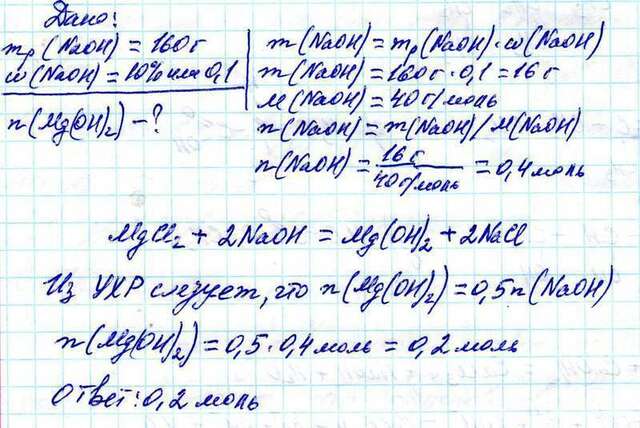 Дано:
mр(NaOH) = 160 г
ω(NaOH) = 10% или 0,1
n(Mg(OH)₂) - ?
m(NaOH) = mр(NaOH)·ω(NaOH)
m(NaOH) = 160г · 0,1 = 16 г
M(NaOH) = 40 г/моль
n(NaOH) = m(NaOH)/M(NaOH)
n(NaOH) = 16 г / 40 г/моль = 0,4 моль
MgCl₂ + 2NaOH = Mg(OH)₂ + 2NaCl
Из УХР следует, что n(Mg(OH)₂) = 0,5n(NaOH)
n(Mg(OH)₂) = 0,5 · 0,4 моль = 0,2 моль
Ответ: 0,2 моль